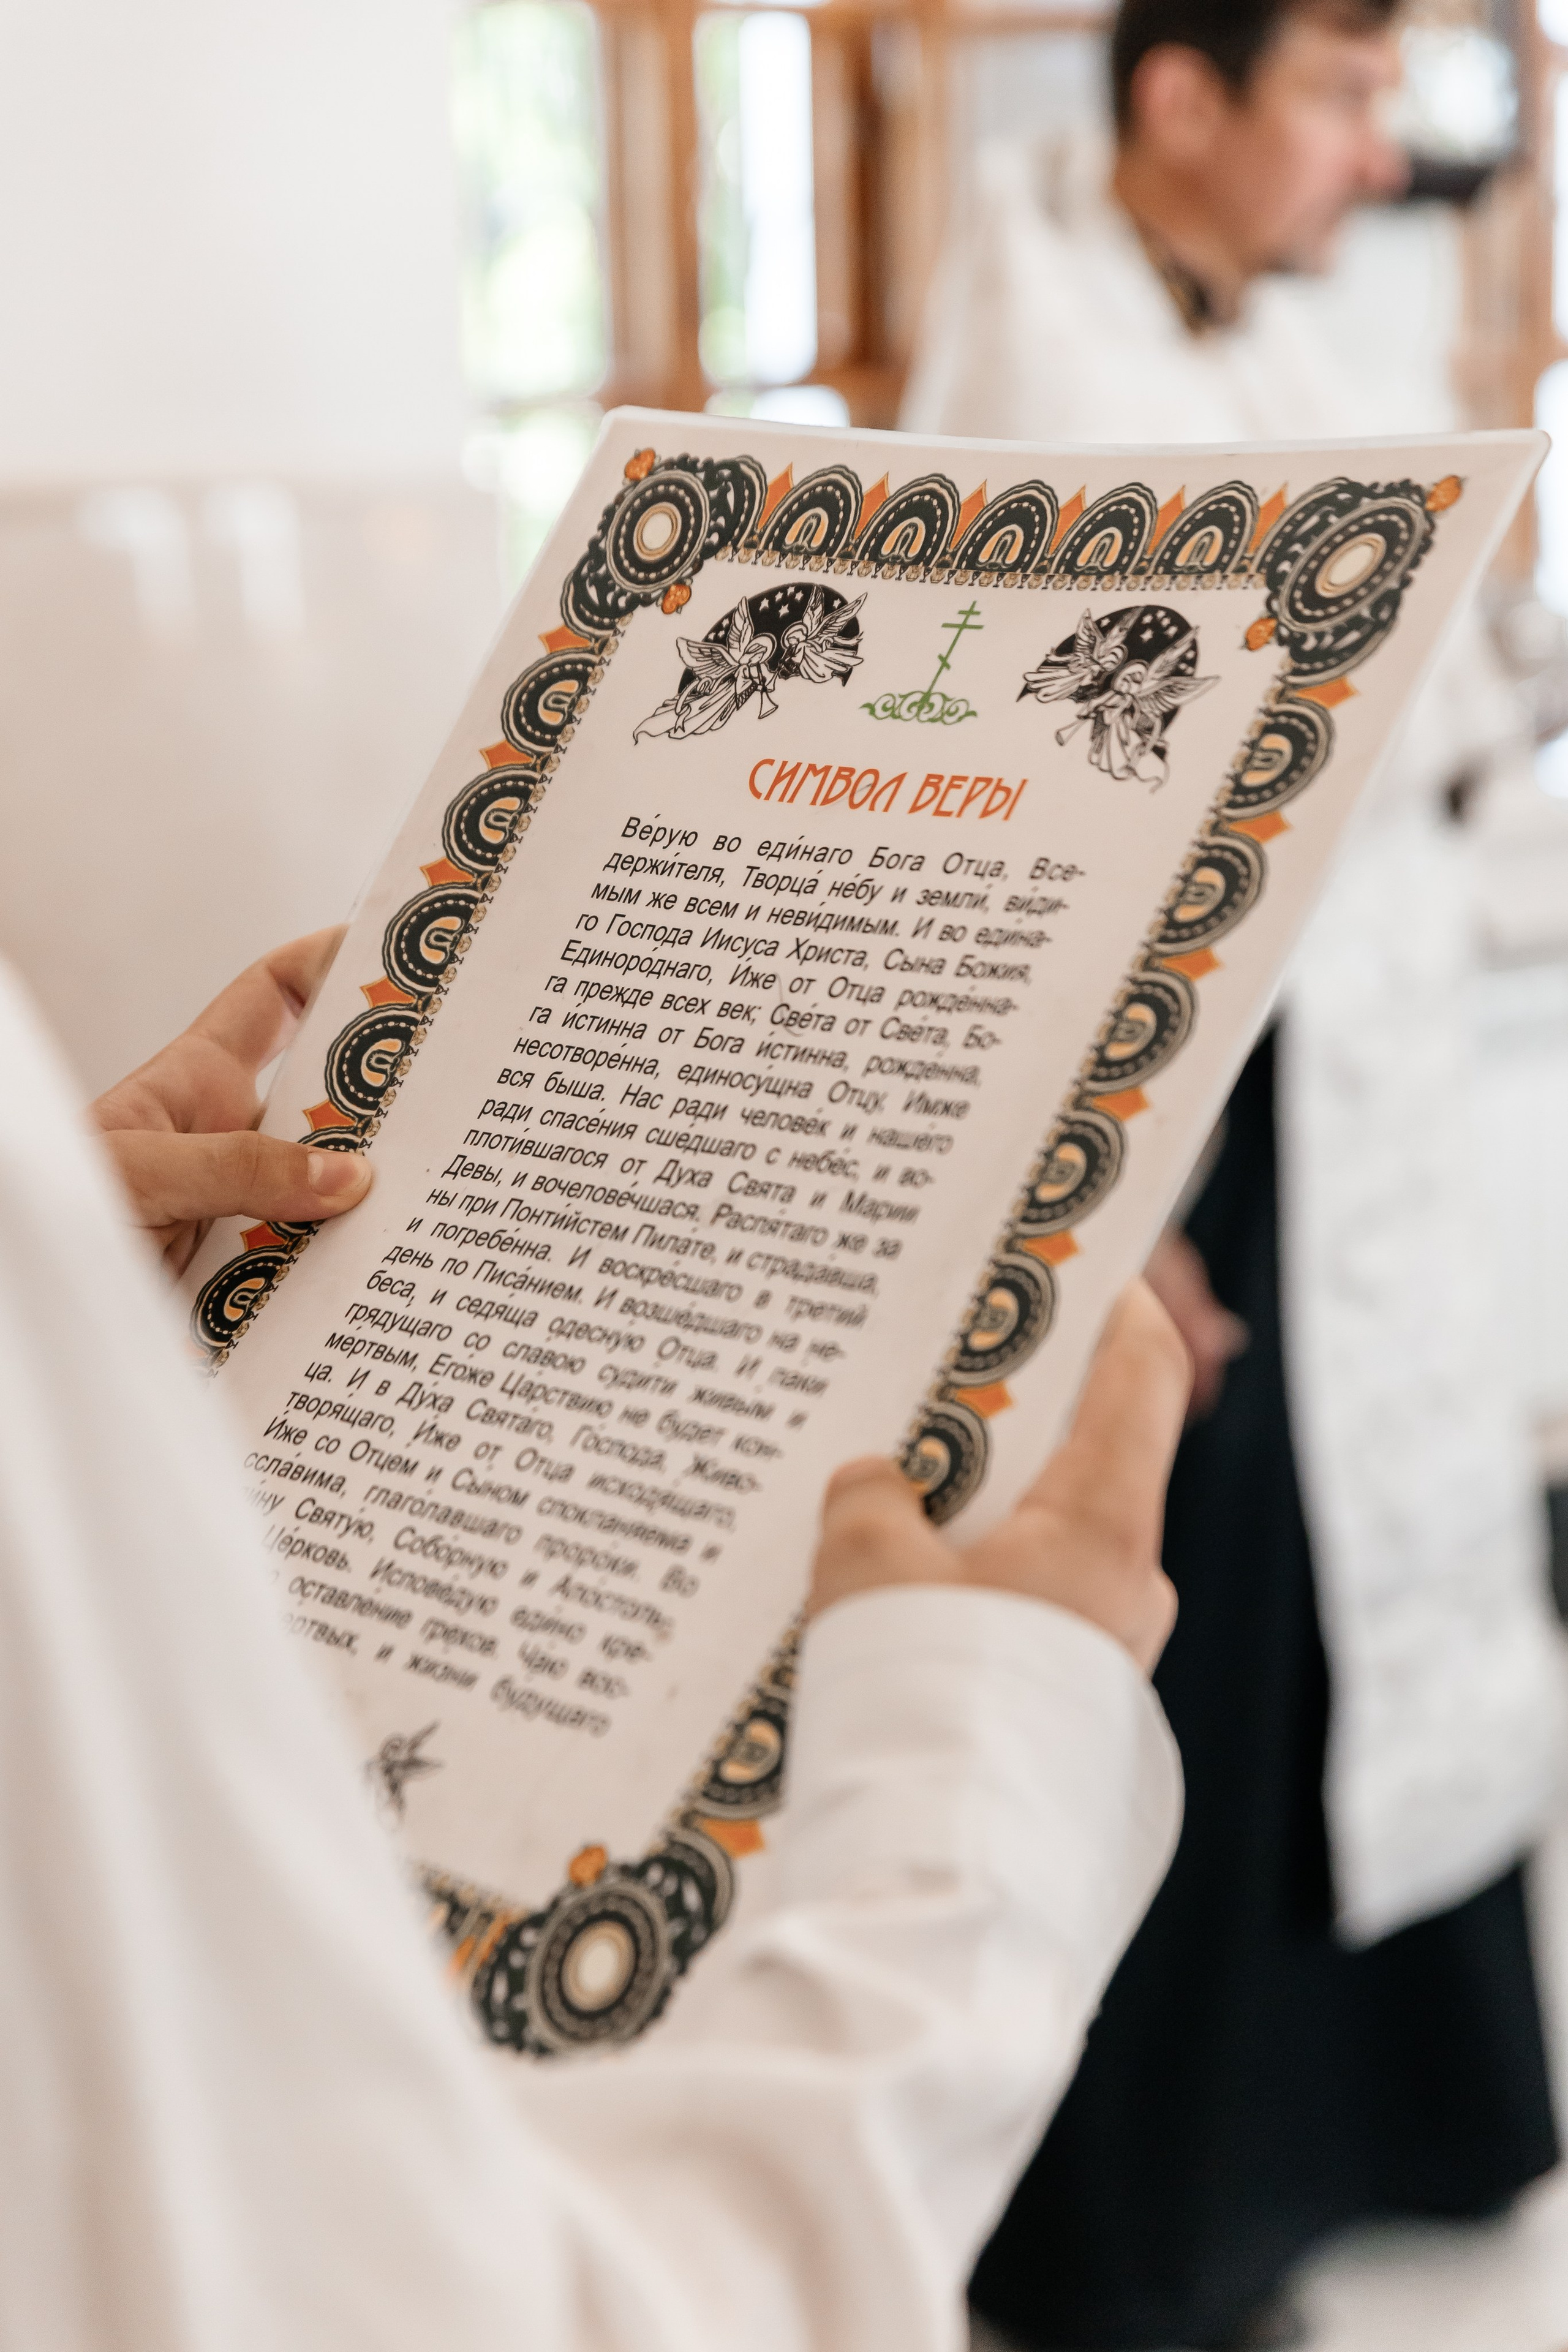 СИМВОЛ ВЕРЫ
Ве́рую во еди́наго Бога Отца, Все-
держи́теля, Творца́ не́бу и земли́, ви́ди-
мым же всем и неви́димым. И во едина-
го Господа Иисуса Христа, Сына Божия,
Единоро́днаго, И́же от Отца рожде́нна-
га прежде всех век; Све́та от Све́та, Бо-
га и́стинна от Бога и́стинна, рожде́нна,
несотворе́нна, единосу́щна Отцу, Имже
вся быша. Нас ради челове́к и наше́го
ради спасе́ния сше́дшаго с небе́с, и во-
плоти́вшагося от Духа Свята и Марии
Девы, и вочелове́чшася. Распя́таго же за
ны при Понти́йстем Пила́те, и страда́вша,
и погребе́нна. И воскре́сшаго в третий
день по Писа́нием. И возше́дшаго на не-
беса, и седя́ща одесну́ю Отца. И паки
гряду́щаго со сла́вою суди́ти живы́м и
ме́ртвым, Его́же Ца́рствию не будет кон-
ца. И в Ду́ха Свята́го, Го́спода, Живо-
творя́щаго, И́же от Отца исходя́щаго,
И́же со Отцем и Сыном спокланяема и
ссла́вима, глаго́лавшаго проро́ки. Во
Святу́ю, Собо́рную и Апо́столь-
Це́рковь. Испове́дую еди́но кре-
оставле́ние грехов. Ча́ю вос-
и жизни будущаго